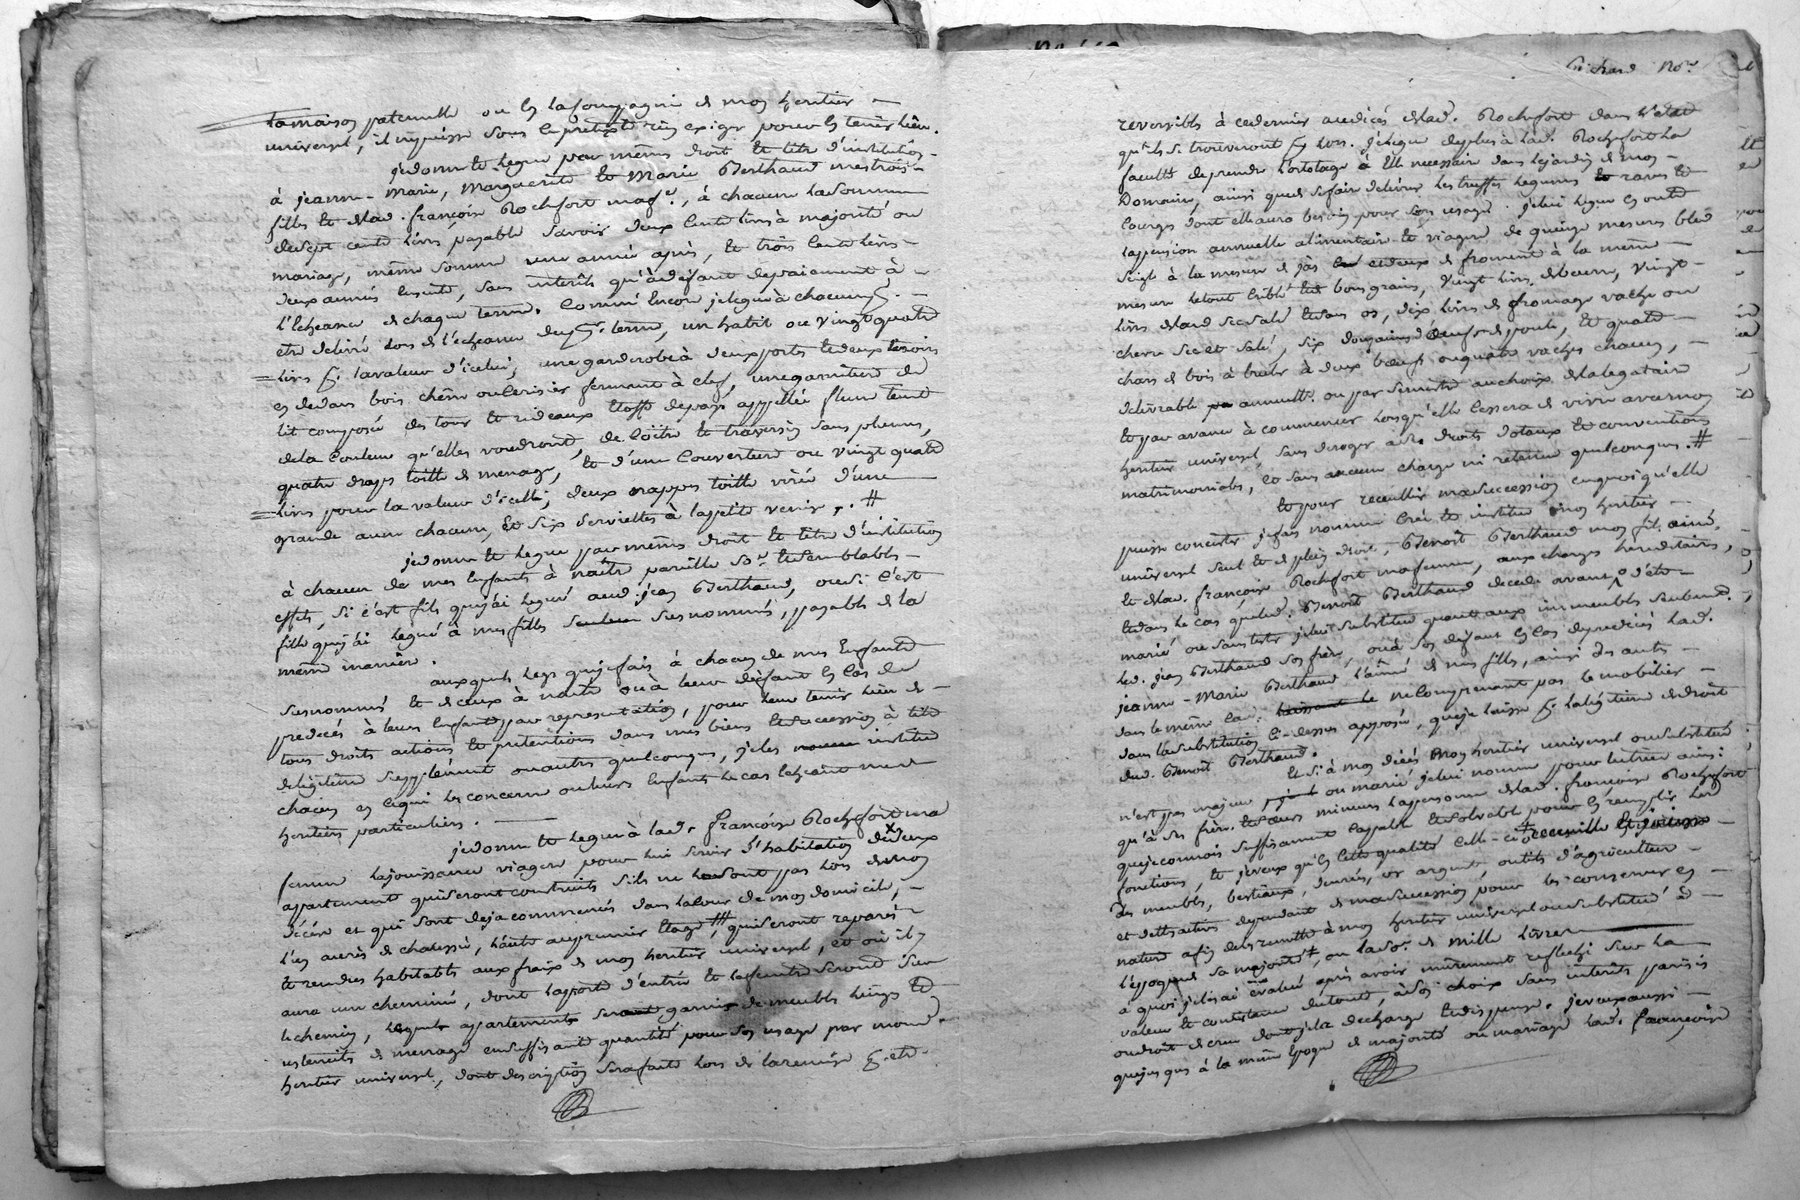 la maison paternelle ou en la compagnie de mon heritier
universel, il ne puisse sous ce pretexte rien exiger pour en tenir lieu.
je donne et legue par mêmes droit et titre d'institution
à jeanne-Marie, Marguerite et Marie Berthaud mes trois
filles et de lad. françoise Rochefort ma fe., à chacune la somme
de sept cents livres payable savoir deux cents livres à majorité ou
mariage, même somme une année après, et trois cents livres
deux années ensuite, sans interêts qu'à défaut de paiement à
l'echeance de chaque terme. comme encore je legue à chacune
etre delivré lors de l'echeance du terme, un habit ou vingt quatre
livres pr. la valeur d'icelui, une garderobe à deux portes et deux tiroirs
en dedans bois chêne ou cerisier fermant à clef, une garniture de
lit composée de tour et rideaux etoffe de pays appellée
de la couleur qu'elles voudront, de coitre et traversin sans plumes,
quatre draps toille de menage, et d'une couverture ou vingt quatre
livres pour la valeur d'icelle; deux nappes toille d'une
grande aune chacune, et six serviettes à la petite venise. #
je donne et legue par mêmes droit et titre d'institution
à chacun de mes enfants à naître pareille so. et semblables
effets, si c'est fils que j'ai legué aud. jean Berthaud, ou si c'est
fille que j'ai legué à mes filles susnommés, payables de la
même manière.
auxquels legs que je fais à chacun de mes Enfants
susnommés et de ceux à naître ou à leur défaut en cas de
predecés à leurs enfants par representation, pour leur tenir lieu de
tous droits actions et pretentions dans mes biens et succession à titre
de legitime supplément ou autres quelconques, je les institue
chacun en ce qui les concerne ou leurs enfants le cas echeant mes
heritiers particuliers.
je donne et legue à lad. françoise Rochefort ma
femme la jouissance viagere pour lui servir d'habitation de deux
appartement qui seront construits s'ils ne le sont pas lors de mon
décés et qui sont deja commencés dans la cour de mon domicile,
l'un au rés de chaussée, l'autre au premier etage, # qui seront reparés
et rendus habitables aux fraix de mon heritier universel, et où il y
aura une cheminée, dont la porte d'entrée et la fenetre seront sur
le chemin, lesquels appartements garnis de meubles linges et
ustensils de menage en suffisante quantité pour son usage par mond.
heritier universel, dont description sera faite lors de la remise pr. etre
Richard Nore.
reversibles à ce dernier au decés de lad. Rochefort dans l'etat
qu'ils se trouveront pr. lors. je legue de plus à lad. Rochefort la
faculté de prendre l'ortolage à Elle necessaire dans le jardin de mon
Domaine, ainsi que de se faire delivrer les truffes legumes raves et
courges dont elle aura besoin pour son usage. je lui legue en outre
la pension annuelle alimentaire et viagere de quinze mesures bled
seigle à la mesure de et deux de froment à la même
mesure le tout criblé et bons grains, vingt livres de beurre, vingt
livres de lard sec salé et sans os, dix livres de fromage vache ou
chevre sec et salé, six douzaines oeufs de poule, et quatre
chars de bois à bruler à deux boeufs ou quatre vaches chacun,
delivrable annuellt. ou par semestre au choix de la legataire
et par avance à commencer lorsqu'elle cessera de vivre avec mon
heritier universel, sans deroger à ses droits dotaux et conventions
matrimoniales, et sans aucune charge ni retenue quelconques. #
et pour recueillir ma succession en quoi qu'elle
puisse concister je fais nomme crée et institue mon heritier
universel seul et de plein droit, Benoit Berthaud mon fils ainé,
et de lad. françoise Rochefort ma femme, aux charges hereditaires,
et dans le cas que led. Benoit Berthaud decede avant d'etre
marié ou sans tester je lui substitue quant aux immeubles seulement
led. jean Berthaud son frère, ou à son défaut en cas de predecés lad.
jeanne-Marie Berthaud l'ainée de mes filles, ainsi des autres
dans le même cas; ne comprenant pas le mobilier
dans la substitution ci-dessus apposée, que je laisse pr. la legitime de droit
dud. Benoit Berthaud.
Et si à mon décés mon heritier universel ou substitué
n'est pas majeur ou marié je lui nomme pour tutrice ainsi
qu'à ses frères et soeurs mineurs la personne de lad. françoise Rochefort
que je connois suffisamment capable et solvable pour en remplir les
fonctions, et je veux qu'en cette qualité celle-ci
des meubles, bestiaux, denrées, or argent, outils d'agriculture
et dettes actives dependant de ma succession pour les conserver en
nature afin de les remettre à mon heritier universel ou substitué à
l'epoque de sa majorité, ou la so. de mille livres
à quoi je les ai evalué après avoir murement reflechi sur la
valeur et contistance du tout, à son choix sans interêts
ou droit de crue dont je la decharge et dispense. je veux aussi
que jusques à la même epoque de majorité ou mariage lad. françoise